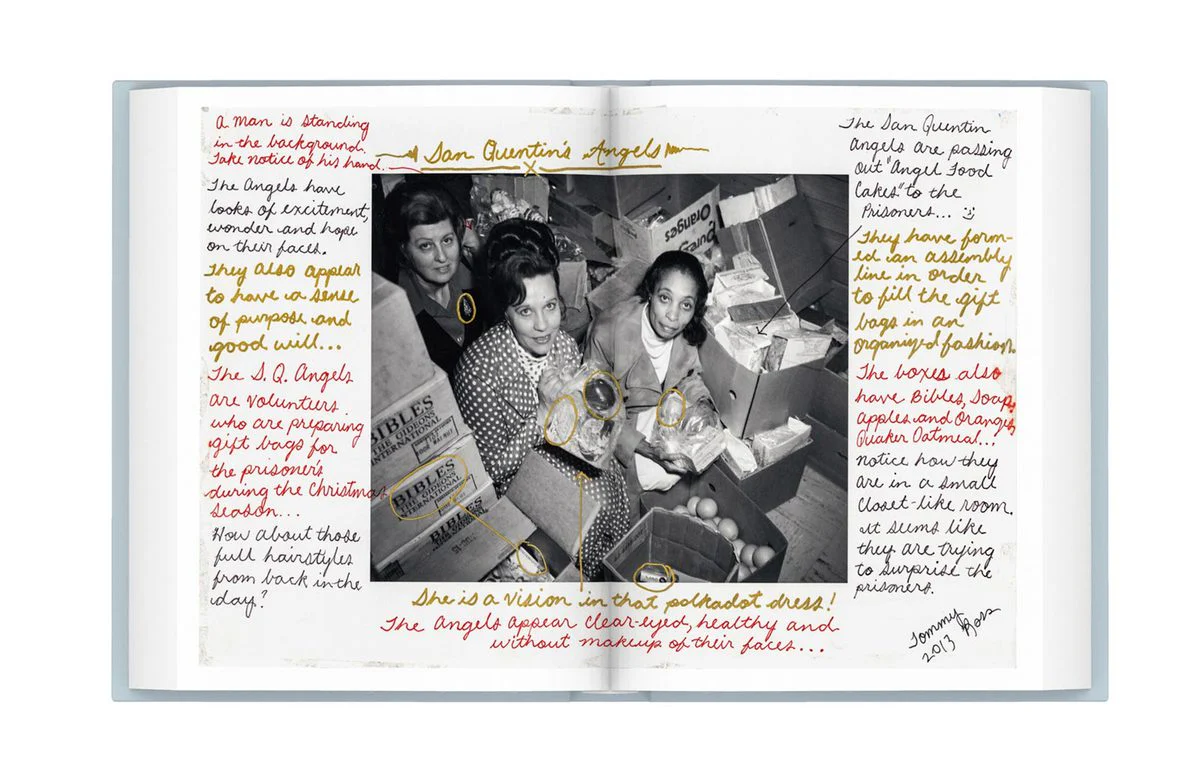 San Quentin's Angels
A man is standing
in the background.
Take notice of his hand...
The Angels have
looks of excitement,
wonder and hope
on their faces.
They also appear
to have a sense
of purpose and
good will...
The S.Q. Angels
are volunteers.
who are preparing
gift bags for
the prisoner's
during the Christmas
season...
How about those
full hairstyles
from back in the
day?
Oranges
BIBLES
THE GIDEONS
INTERNATIONAL
BIBLES
THE GIDEONS
INTERNATIONAL
BIBLES
THE GIDEONS
INTERNATIONAL
She is a vision in that polkadot dress!
The Angels appear clear-eyed, healthy and
without makeup of their faces...
The San Quentin
Angels are passing
out "Angel Food
Cakes" to the
Prisoners... :)
They have form-
ed an assembly
line in order
to fill the gift
bags in an
organized fashion.
The boxes also
have Bibles, Soap,
apples and Oranges,
Quaker Oatmeal...!
notice how they
are in a small
closet-like room.
it seems like
they are trying
to surprise the
prisoners.
Tommy Ross
2013